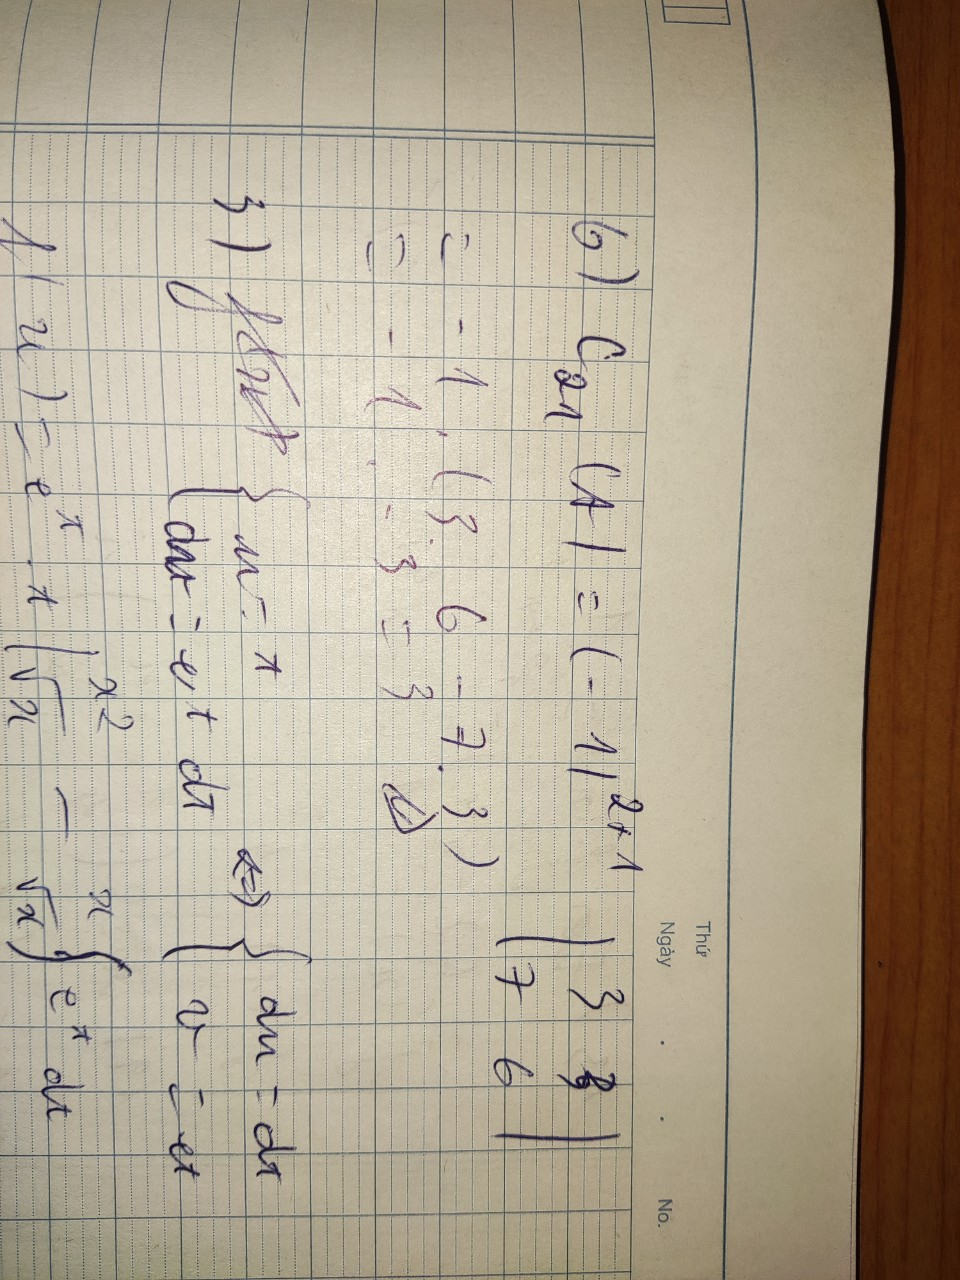 Thứ
Ngày . . No.
b) C21 (A) = (-1)^2+1 | 3 3 |
| 7 6 |
= -1 . (3. 6 - 7. 3)
= - 1 . - 3 = 3
3) { u = t <=> { du = dt
{ dv = e^t dt { v = e^t
f(x) = e^t . t |_√x^x2 - ∫_√x^x2 e^t dt